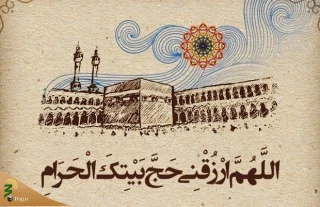 اللَّهُمَّ ارْزُقْنِي حَجَّ بَيْتِكَ الْحَرَام